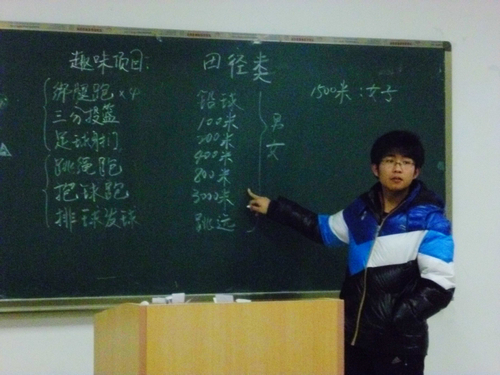 趣味项目:
绑腿跑×4
三分投篮
足球射门
跳绳跑
抱球跑
排球发球
田径类
铅球
100米
200米
400米
800米
3000米
跳远
男
女
1500米:女子